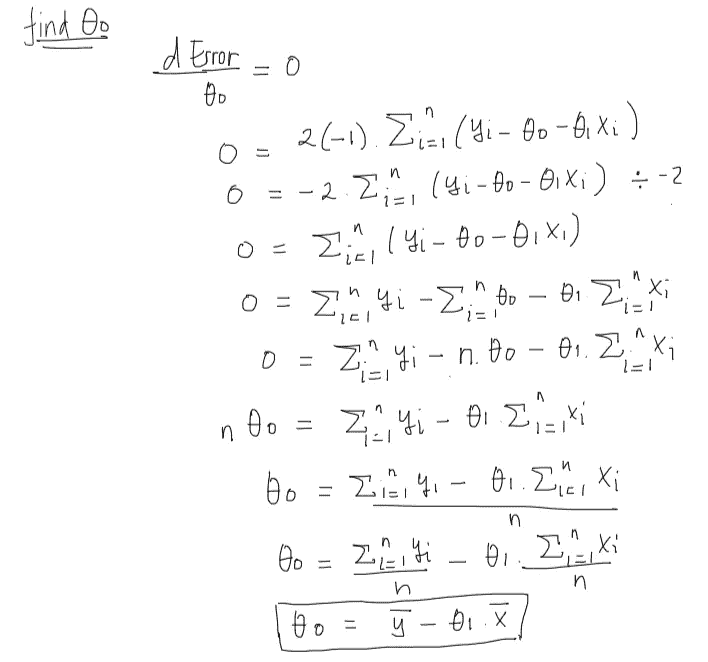 find θ₀
d Error / θ₀ = 0
0 = 2(-1). Σᵢ₌₁ⁿ (yᵢ - θ₀ - θ₁Xᵢ)
0 = -2. Σᵢ₌₁ⁿ (yᵢ - θ₀ - θ₁Xᵢ) ÷ -2
0 = Σᵢ₌₁ⁿ (yᵢ - θ₀ - θ₁X₁)
0 = Σᵢ₌₁ⁿ yᵢ - Σᵢ₌₁ⁿ θ₀ - θ₁ Σᵢ₌₁ⁿ Xᵢ
0 = Σᵢ₌₁ⁿ yᵢ - n.θ₀ - θ₁. Σᵢ₌₁ⁿ Xᵢ
n θ₀ = Σᵢ₌₁ⁿ yᵢ - θ₁ Σᵢ₌₁ⁿ Xᵢ
θ₀ = (Σᵢ₌₁ⁿ y₁ - θ₁. Σᵢ₌₁ⁿ Xᵢ) / n
θ₀ = Σᵢ₌₁ⁿ yᵢ / n - θ₁. Σᵢ₌₁ⁿ Xᵢ / n
θ₀ = y̅ - θ₁. X̅